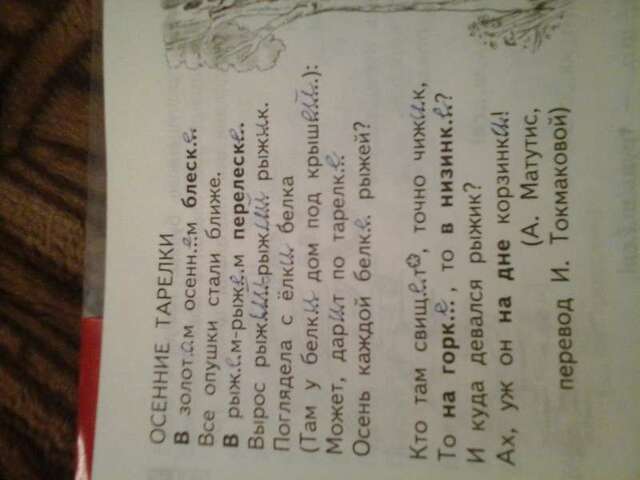 ОСЕННИЕ ТАРЕЛКИ
В золотом осеннем блеске
Все опушки стали ближе.
В рыжем-рыжем перелеске
Вырос рыжий-рыжий рыжик.
Поглядела с ёлки белка
(Там у белки дом под крышей.):
Может, дарит по тарелке
Осень каждой белке рыжей?
Кто там свищет, точно чижик,
То на горке, то в низинке?
И куда девался рыжик?
Ах, уж он на дне корзинки!
(А. Матутис,
перевод И. Токмаковой)